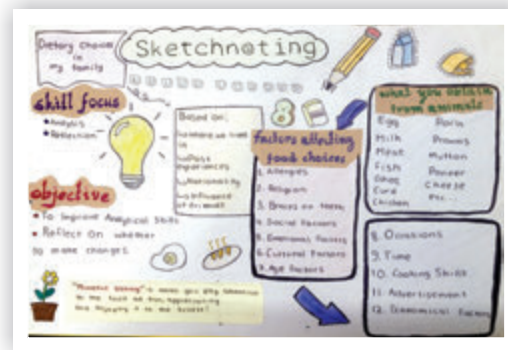 Dietary Choices
in
my family
Sketchnoting
skill focus
Analysis
Reflection
objective
To Improve Analytical Skills
Reflect On whether
to make changes.
Based on:
where we lived
in
Past
experiences
Nationality
Influence
of friends
factors affecting
food choices
1. Allergies
2. Religion
3. Braces on teeth
4. Social Factors
5. Emotional Factors
6. Cultural Factors
7. Age Factors
what you obtain
from animals
Egg
Milk
Meat
Fish
Ghee
Curd
Chicken
Prawns
Mutton
Paneer
Cheese
etc...
8. Occasions
9. Time
10. Cooking Skills
11. Advertisement
12. Economical Factors
"Mindful Eating" is when you pay attention
to the food we eat, appreciating
and enjoying it to the fullest!